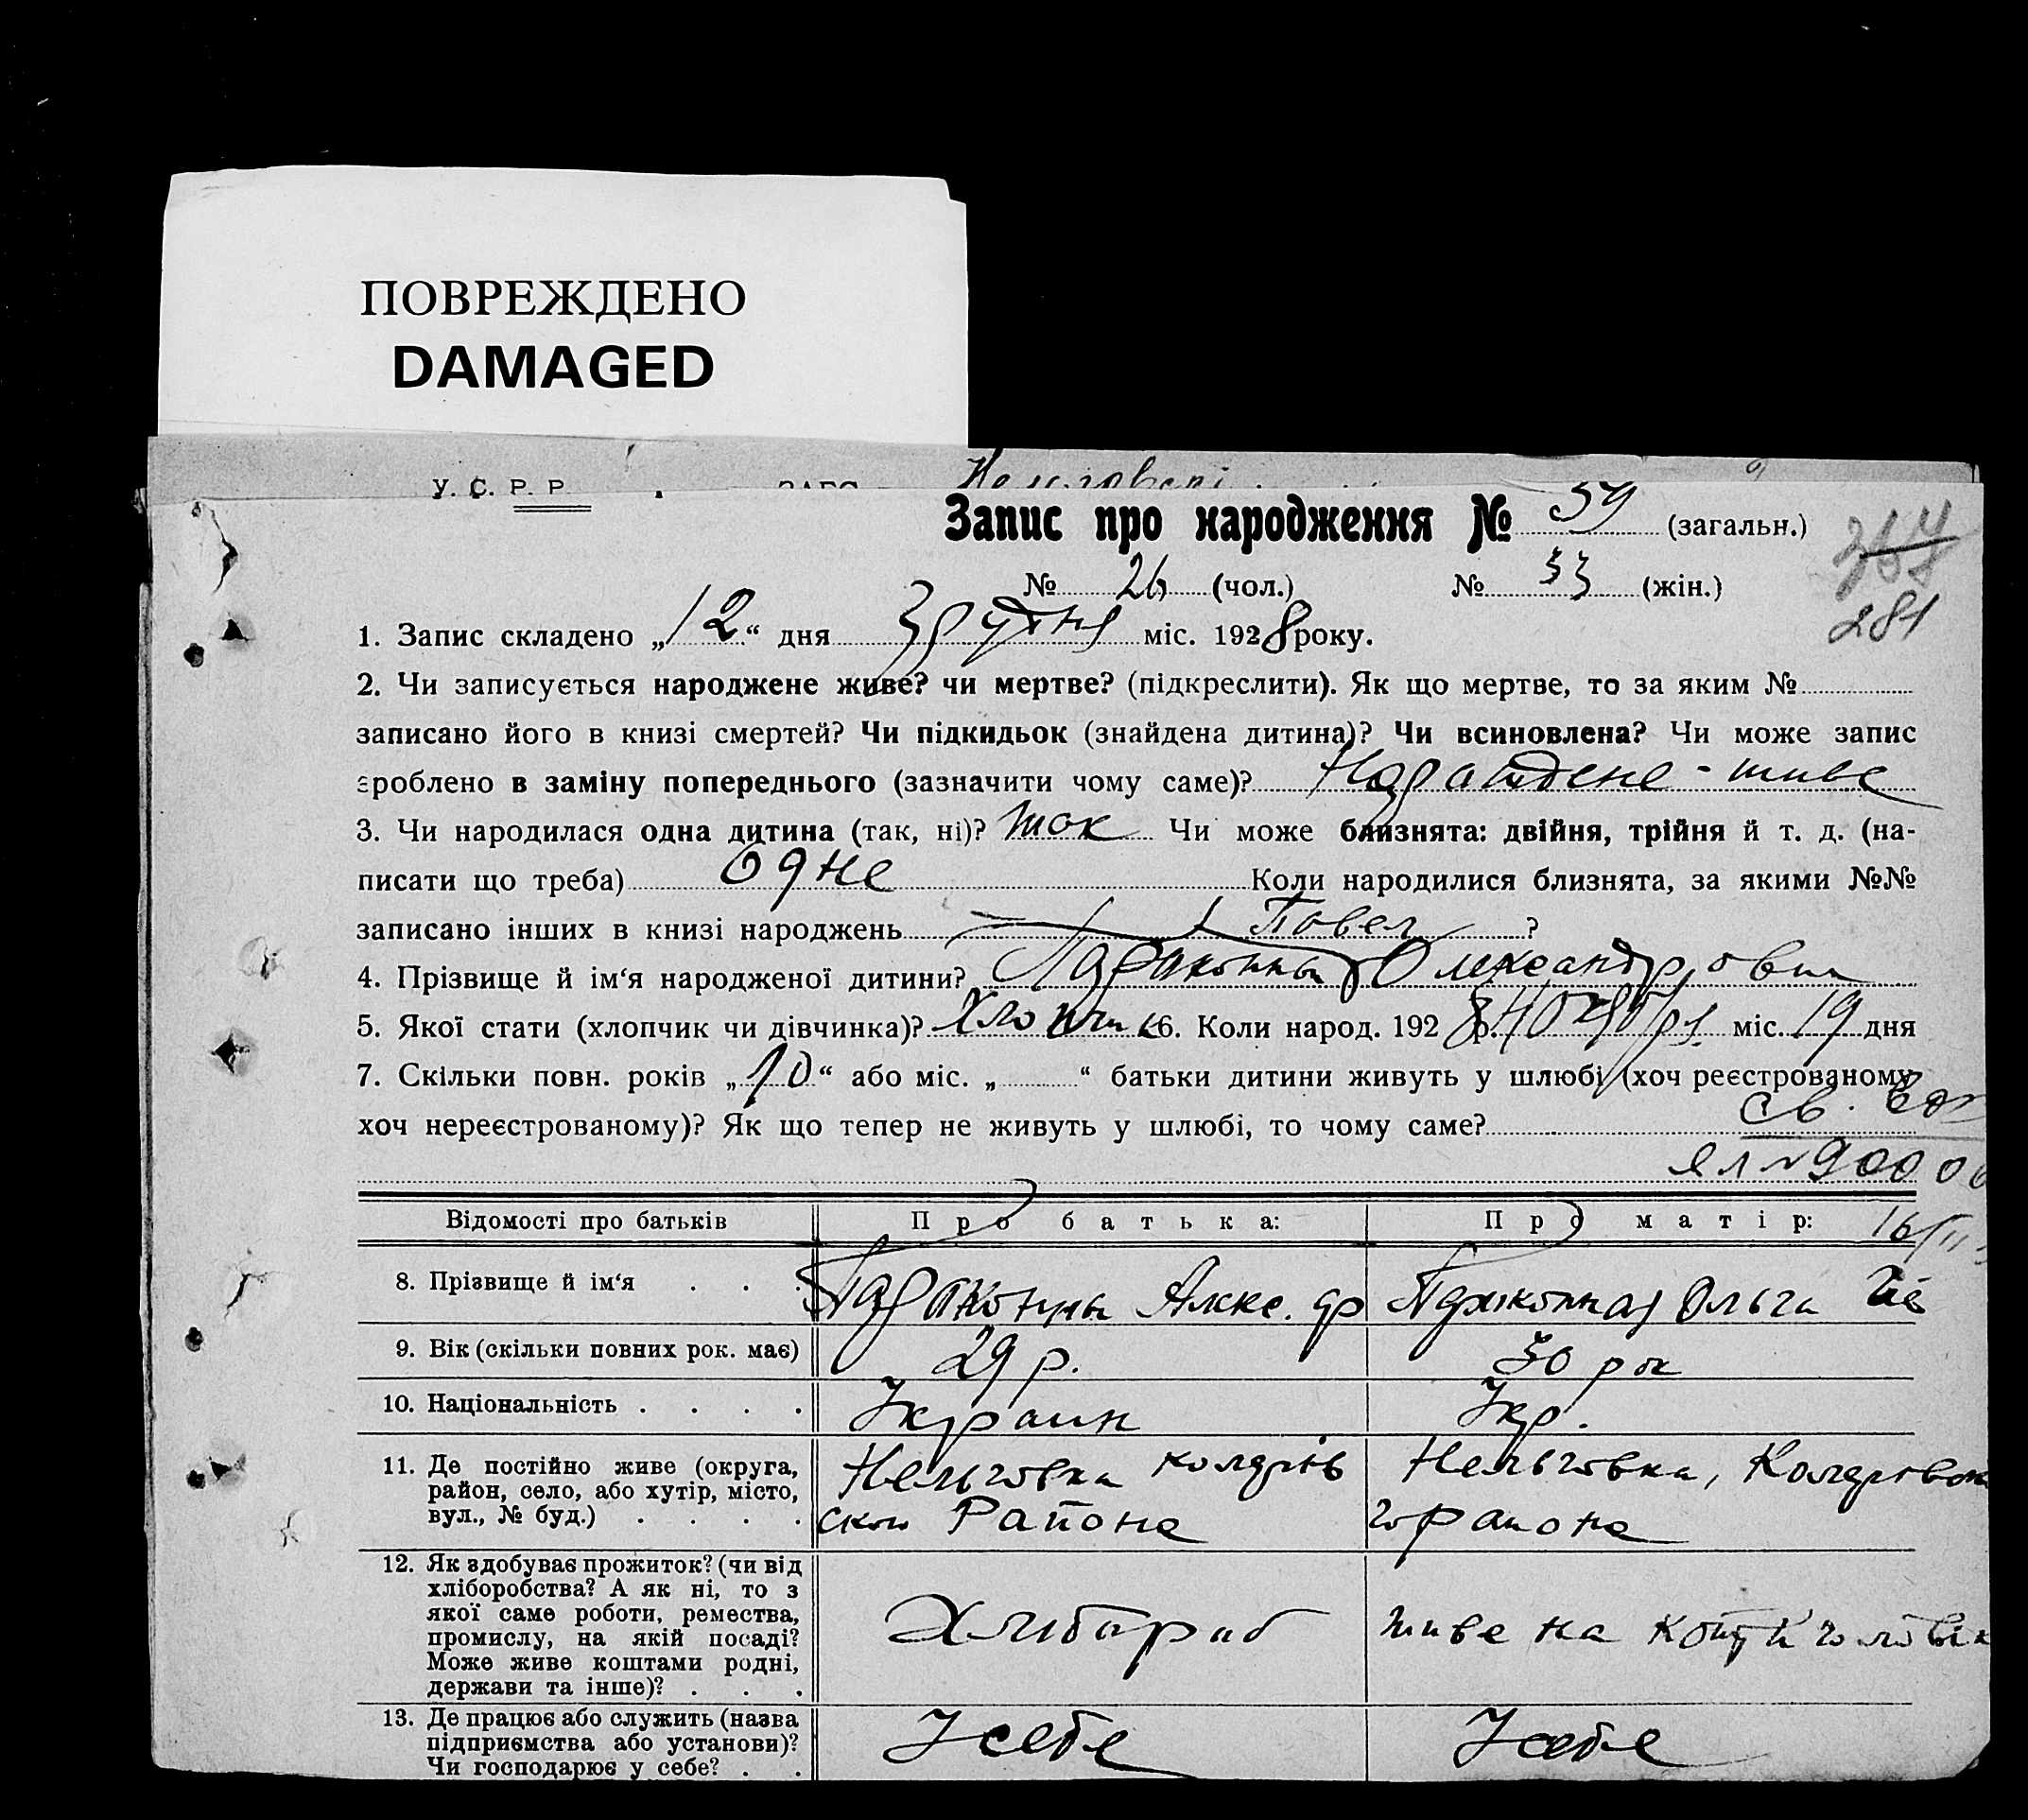 ПОВРЕЖДЕНО
DAMAGED
У. С. Р. Р.
Запис про народження № 59 (загальн.)
№ 26 (чол.) № 33 (жін.)
281
1. Запис складено „12“ дня Грудня міс. 1928 року.
2. Чи записується народжене живе? чи мертве? (підкреслити). Як що мертве, то за яким №
записано його в книзі смертей? Чи підкидьок (знайдена дитина)? Чи всиновлена? Чи може запис
зроблено в заміну попереднього (зазначити чому саме)? Народжене - живе
3. Чи народилася одна дитина (так, ні)? так Чи може близнята: двійня, трійня й т. д. (на-
писати що треба) одне Коли народилися близнята, за якими №№
записано інших в книзі народжень Павел ?
4. Прізвище й ім‘я народженої дитини? Олександрович
5. Якої стати (хлопчик чи дівчинка)? Хлопчик 6. Коли народ. 1928 р. міс. 19 дня
7. Скільки повн. років „10“ або міс. „ “ батьки дитини живуть у шлюбі (хоч реєстрованому
хоч нереєстрованому)? Як що тепер не живуть у шлюбі, то чому саме?
Відомості про батьків Про батька: Про матір:
8. Прізвище й ім‘я Ольга
9. Вік (скільки повних рок. має) 29 р. 30 рок
10. Національність Украин Укр.
11. Де постійно живе (округа, Нельговка Нельговка,
район, село, або хутір, місто,
вул., № буд.) Района района
12. Як здобуває прожиток? (чи від
хліборобства? А як ні, то з
якої саме роботи, ремества, Хлибороб живе на кошти
промислу, на якій посаді?
Може живе коштами родні,
держави та інше)?
13. Де працює або служить (назва У себе У себе
підприємства або установи)?
Чи господарює у себе?